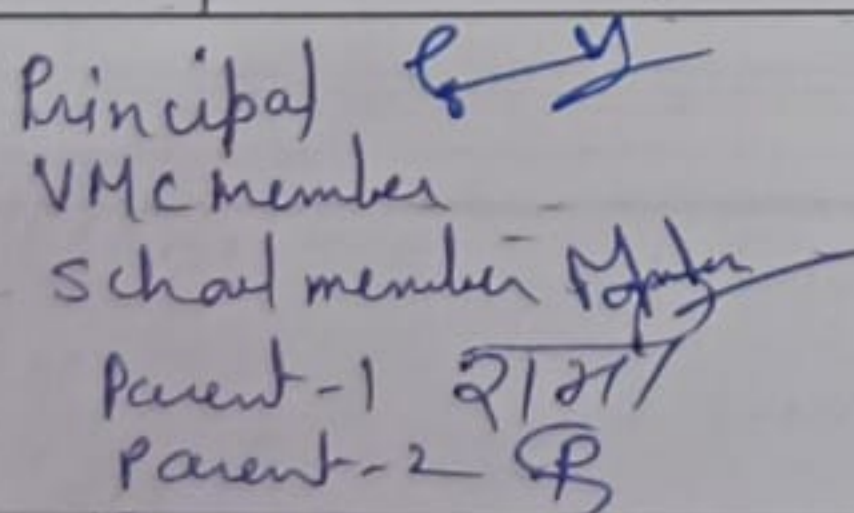 Principal
VMC member
School member
Parent-1
Parent-2